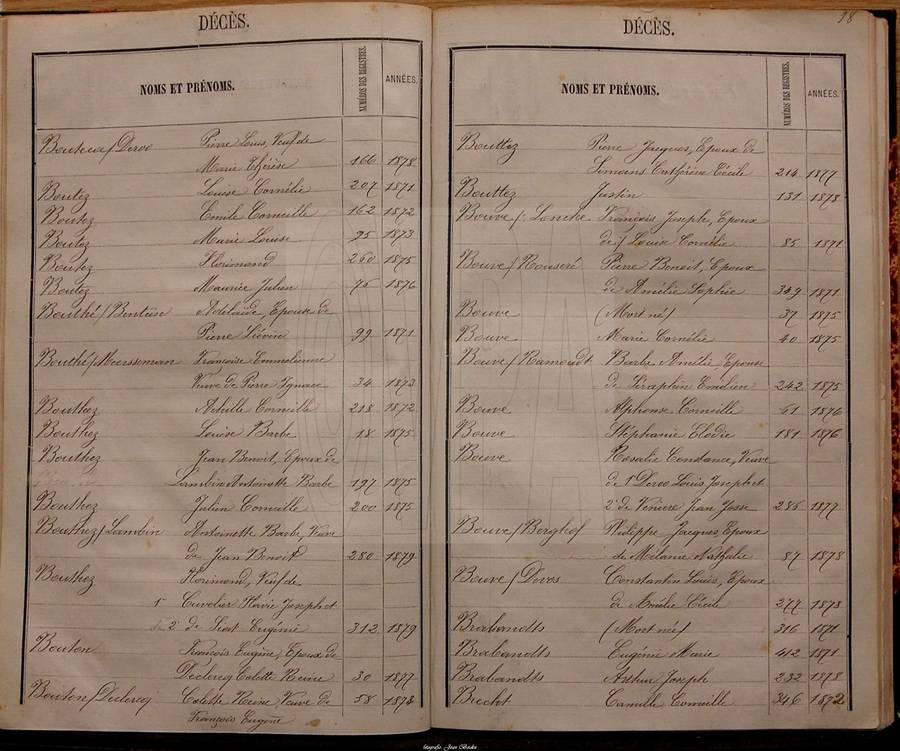 DÉCÈS.
NOMS ET PRÉNOMS. NUMÉROS DES REGISTRES. ANNÉES.
Pierre Louis, Veuf de
Marie Thérèse 166 1878
Boutez Louise Cornélie 207 1871
Boutez Emile Corneille 162 1872
Boutez Marie Louise 95 1873
Boutez Florimond 260 1875
Boutez Maurice Julien 75 1876
Bouthé / Adelaïde, Epouse de
Pierre Liévin 99 1871
Bouthé / Meersseman Françoise Emmelienne
Veuve de Pierre Ignace 34 1873
Bouthez Achille Corneille 218 1872
Bouthez Louise Barbe 18 1875
Bouthez Jean Benoit, Epoux de
Lambin Antoinette Barbe 197 1875
Bouthez Julien Corneille 200 1875
Bouthez / Lambin Antoinette Barbe, Veuve
de Jean Benoit 280 1879
Bouthez Florimond, Veuf de
1° Cuvelier Flavie Joseph et
2° de Eugénie 312 1879
Bouton François Eugène, Epoux de
Declercq Colette Reine 30 1877
Bouton / Declercq Colette Reine, Veuve de 58 1878
François Eugène
18
DÉCÈS.
NOMS ET PRÉNOMS. NUMÉROS DES REGISTRES. ANNÉES.
Bouttez Pierre Jacques, Epoux de
Catherine Cécile 214 1877
Bouttez Justin 131 1878
Bouve / François Joseph, Epoux
de / Louise Cornélie 85 1871
Bouve / Pierre Benoit, Epoux
de Amélie Sophie 349 1871
Bouve (Mort né) 37 1875
Bouve Marie Cornélie 40 1875
Bouve / Ramoudt Barbe Amélie, Epouse
de Séraphin Emilien 242 1875
Bouve Alphonse Corneille 51 1876
Bouve Stéphanie Elodie 181 1876
Bouve Rosalie Constance, Veuve
de 1° Louis Joseph et
2° de Jean 286 1877
Bouve / Berghof Philippe Jacques Epoux
de Mélanie Nathalie 87 1878
Bouve / Constantin Louis, Epoux
de Amélie Cécile 277 1878
Brabandts (Mort né) 316 1871
Brabandts Eugénie Marie 412 1871
Brabandts Arthur Joseph 232 1878
Brecht Camille Corneille 346 1872